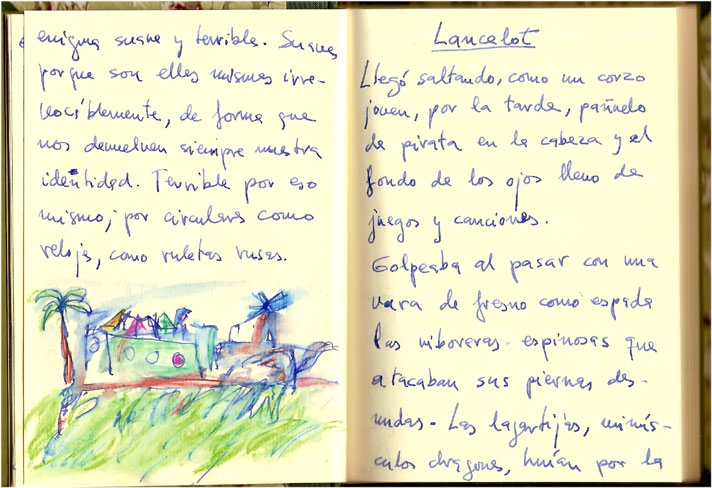 enigma suave y terrible. Suaves
porque son ellas mismas irre-
vocablemente, de forma que
nos devuelven siempre nuestra
identidad. Terrible por eso
mismo, por circulares como
reloj, como ruletas rusas.
Lancelot
Llegó saltando, como un corzo
joven, por la tarde, pañuelo
de pirata en la cabeza y el
fondo de los ojos lleno de
juegos y canciones.
Golpeaba al pasar con una
vara de fresno como espada
las viboreras espinosas que
atacaban sus piernas des-
nudas. Las lagartijas, minús-
culos dragones, huían por la